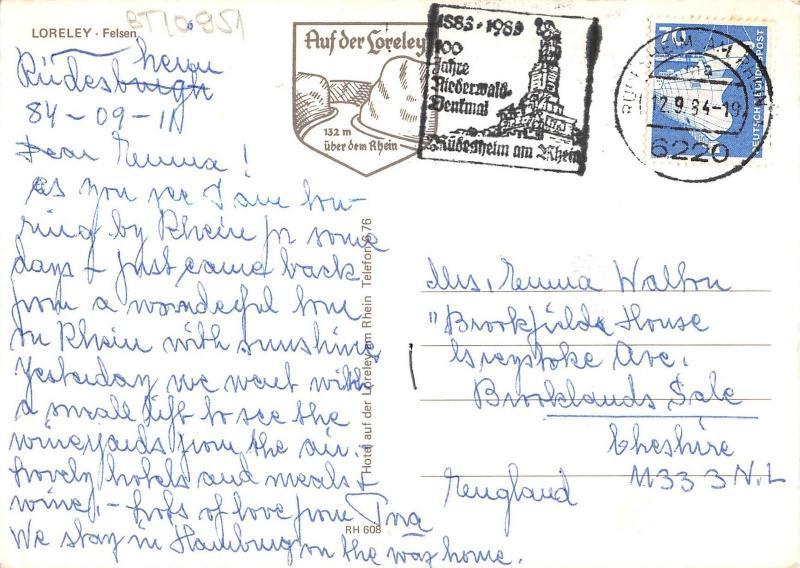 BT10951
LORELEY - Felsen
heim
Rüdesburgh
84-09-11
Dear Emma!
As you see I am tou-
ring by Rhein for some
days - just came back
from a wonderful tour
on Rhein with sunshine.
Yesterday we went with
a small lift to see the
wineyards from the air.
Lovely hotels and meals +
wine. - Lots of love from Ina
We stay in Hamburg on the way home.
Auf der Loreley
132 m
über dem Rhein
1883-1983
100
Jahre
Niederwald-
Denkmal
Rüdesheim am Rhein
RÜDESHEIM AM RHEIN
12.9.84-19
6220
70
DEUTSCHE BUNDESPOST
Hotel auf der Loreley am Rhein Telefon 676
RH 608
Mrs. Emma Walton
"Brookfield House
Greystoke Ave.
Brooklands Sale
Cheshire
M33 3N.L
England